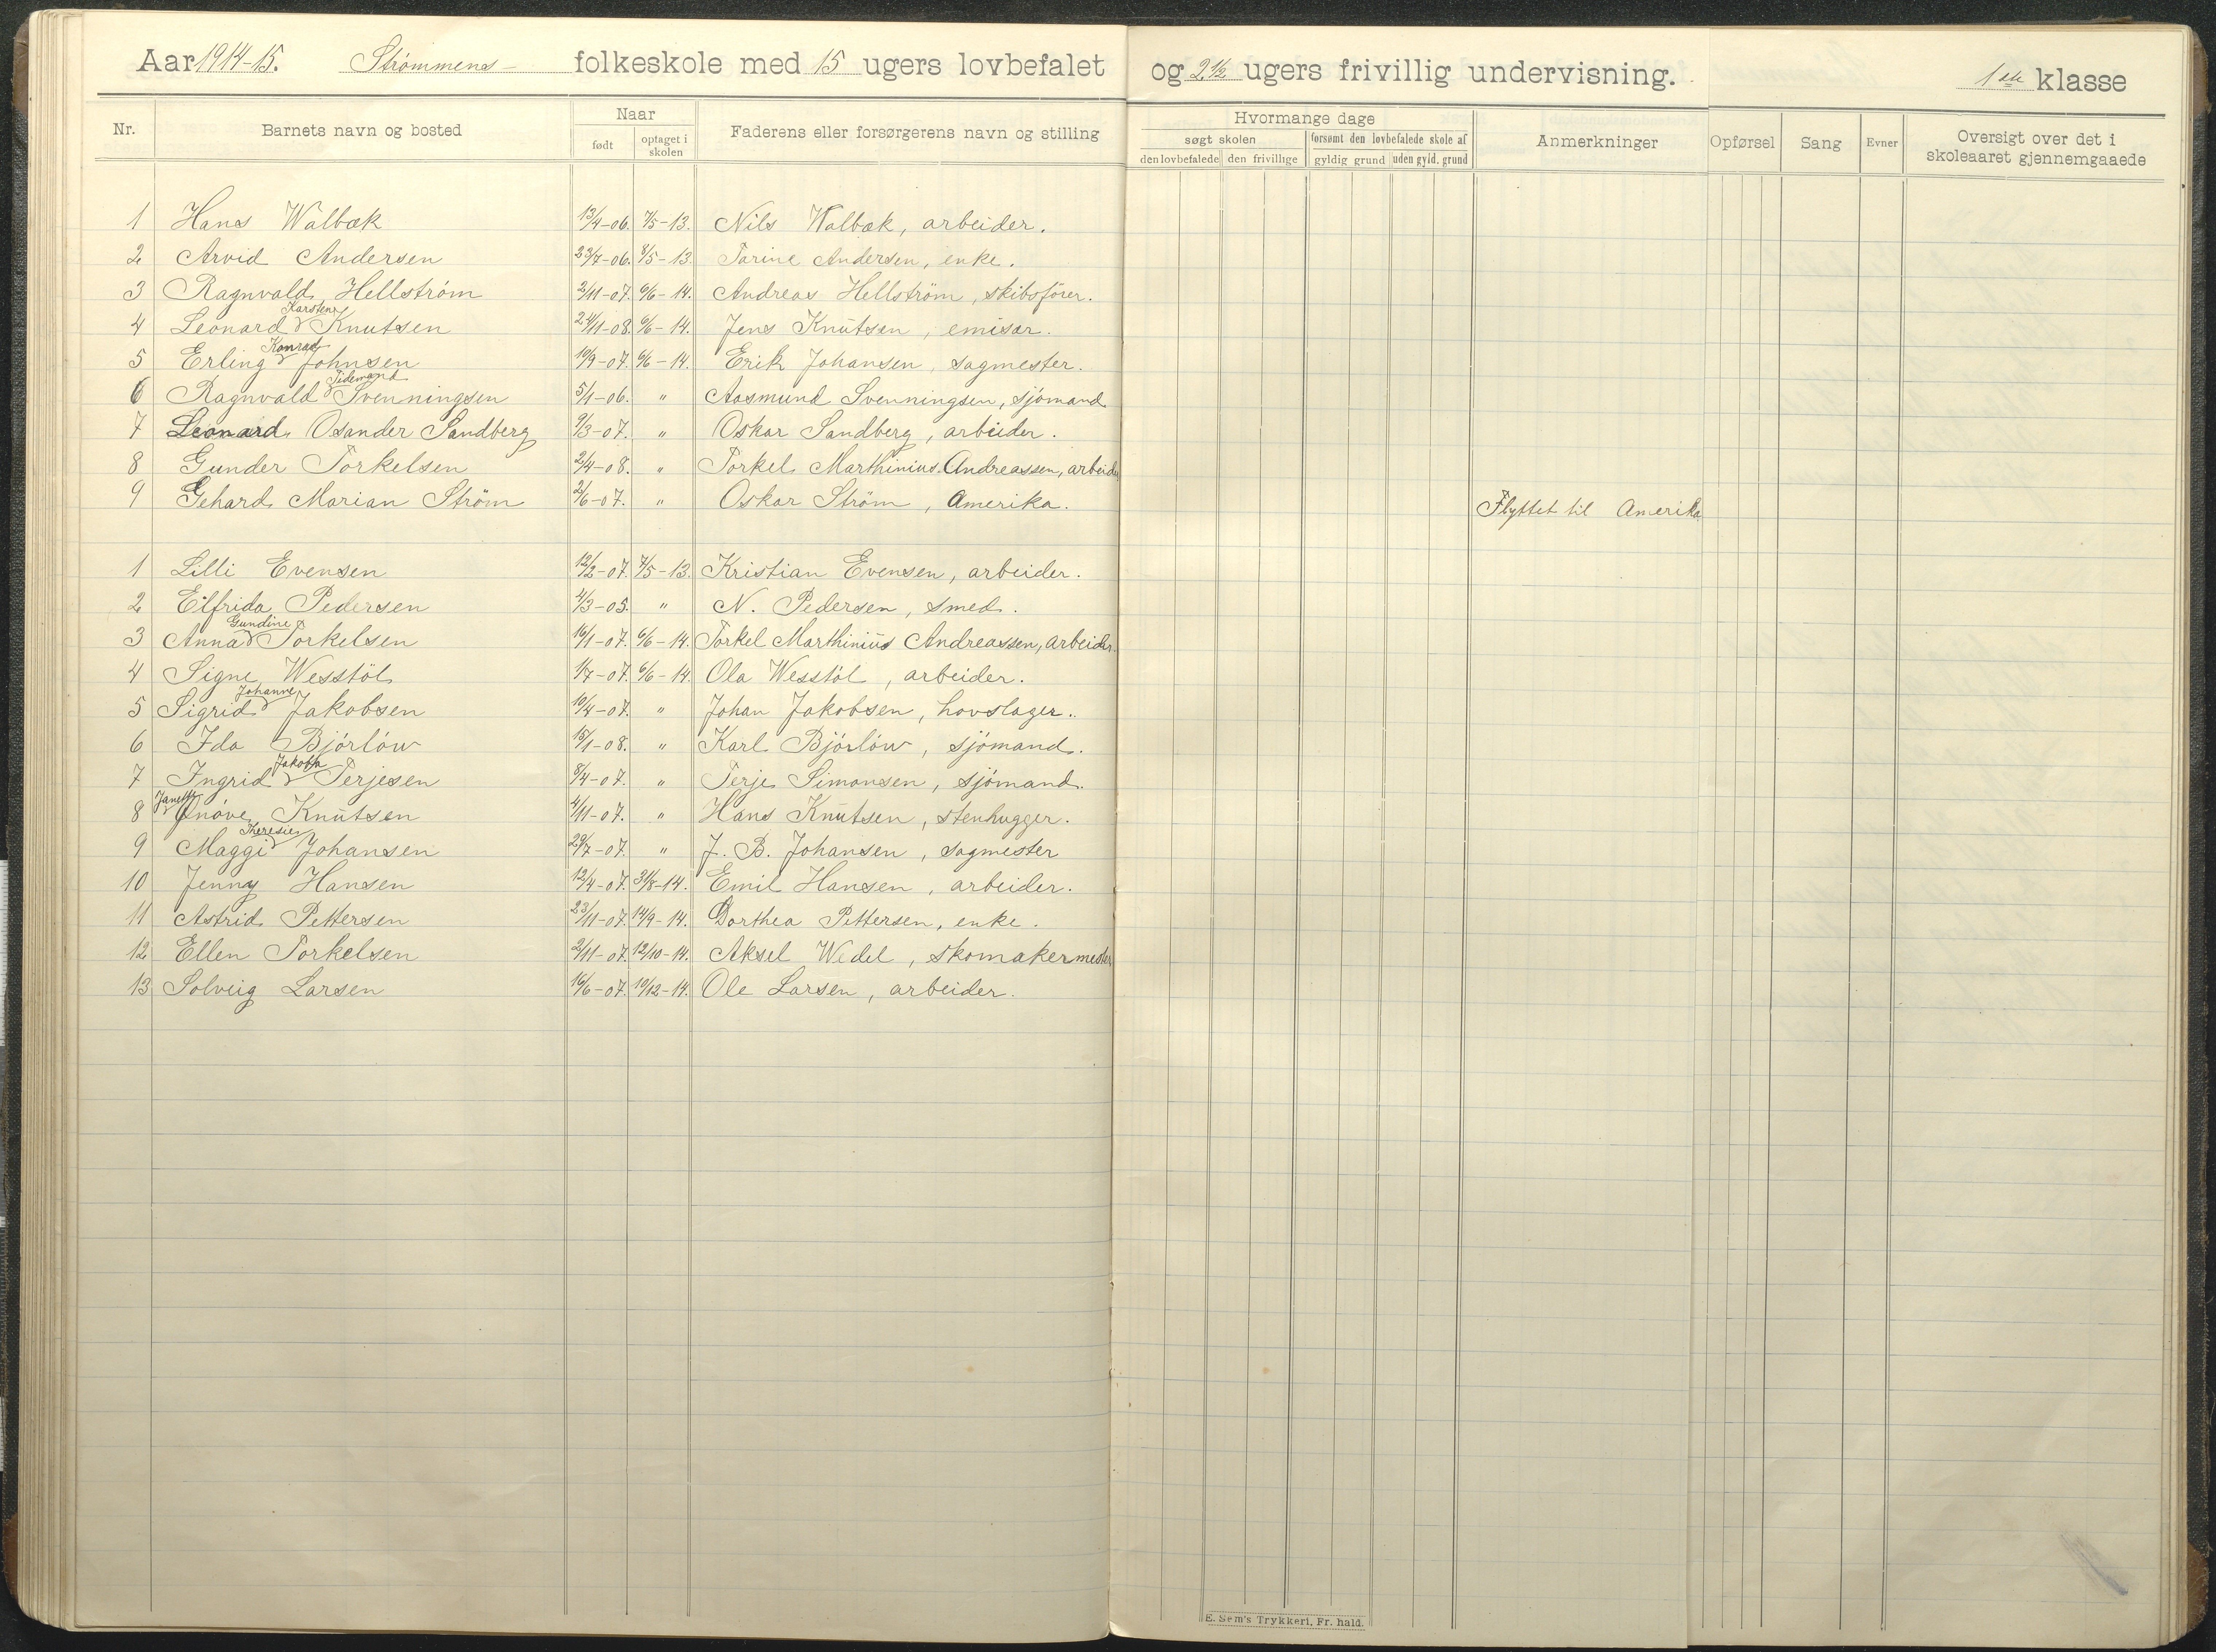 Aar 1914-15. Strømmens- folkeskole med 15 ugers lovbefalet og 2½ ugers frivillig undervisning. 1ste klasse
Nr. Barnets navn og bosted Naar født optaget i skolen Faderens eller forsørgerens navn og stilling Hvormange dage søgt skolen den lovbefalede den frivillige forsømt den lovbefalede skole af gyldig grund uden gyld. grund Anmerkninger Opførsel Sang Evner Oversigt over det i skoleaaret gjennemgaaede
1 Hans Walbæk 13/4-06. 7/5-13. Nils Walbæk, arbeider.
2 Arvid Andersen 23/7-06. 8/5-13. Tarine Andersen, enke.
3 Ragnvald Hellström 2/11-07. 6/6-14. Andreas Hellström, skibsfører.
4 Leonard Karsten Knutsen 24/11-08. 6/6-14. Jens Knutsen, emisær.
5 Erling Konrad Johnsen 10/9-07. 6/6-14. Erik Johansen, sagmester.
6 Ragnvald Tidemand Svenningsen 5/1-06. " Aasmund Svenningsen, sjömand
7 Leonard Osander Sandberg 9/3-07. " Oskar Sandberg, arbeider.
8 Gunder Torkelsen 2/4-08. " Torkel Marthinius Andreassen, arbeider
9 Gehard Marian Ström 2/6-07. " Oskar Ström, Amerika. Flyttet til Amerika
1 Lilli Evensen 12/2-07. 7/5-13. Kristian Evensen, arbeider.
2 Elfrida Pedersen 4/3-05. " N. Pedersen, smed.
3 Anna Gundine Torkelsen 16/1-07. 6/6-14. Torkel Marthinius Andreassen, arbeider.
4 Signe Wesstöl 1/7-07. 6/6-14. Ola Wesstöl, arbeider.
5 Sigrid Johanne Jakobsen 10/4-07. " Johan Jakobsen, hovslager.
6 Ida Björlöw 15/1-08. " Karl Björlöw, sjömand.
7 Ingrid Jakoba Terjesen 8/4-07. " Terje Simonsen, sjömand.
8 Janette Knutsen 4/11-07. " Hans Knutsen, stenhugger.
9 Maggi Theresie Johansen 29/7-07. " J. B. Johansen, sagmester
10 Jenny Hansen 12/4-07. 31/8-14. Emil Hansen, arbeider.
11 Astrid Pettersen 23/11-07. 14/9-14. Dorthea Pettersen, enke.
12 Ellen Torkelsen 2/11-07. 12/10-14. Aksel Wedel, skomakermester
13 Solveig Larsen 16/6-07. 10/12-14. Ole Larsen, arbeider.
E. Sem's Trykkeri, Fr. hald.